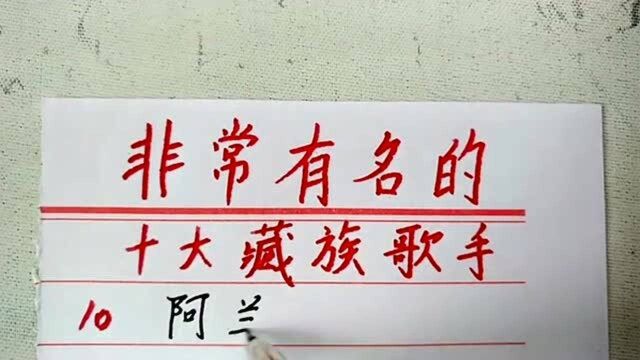 非常有名的
十大藏族歌手
10 阿兰